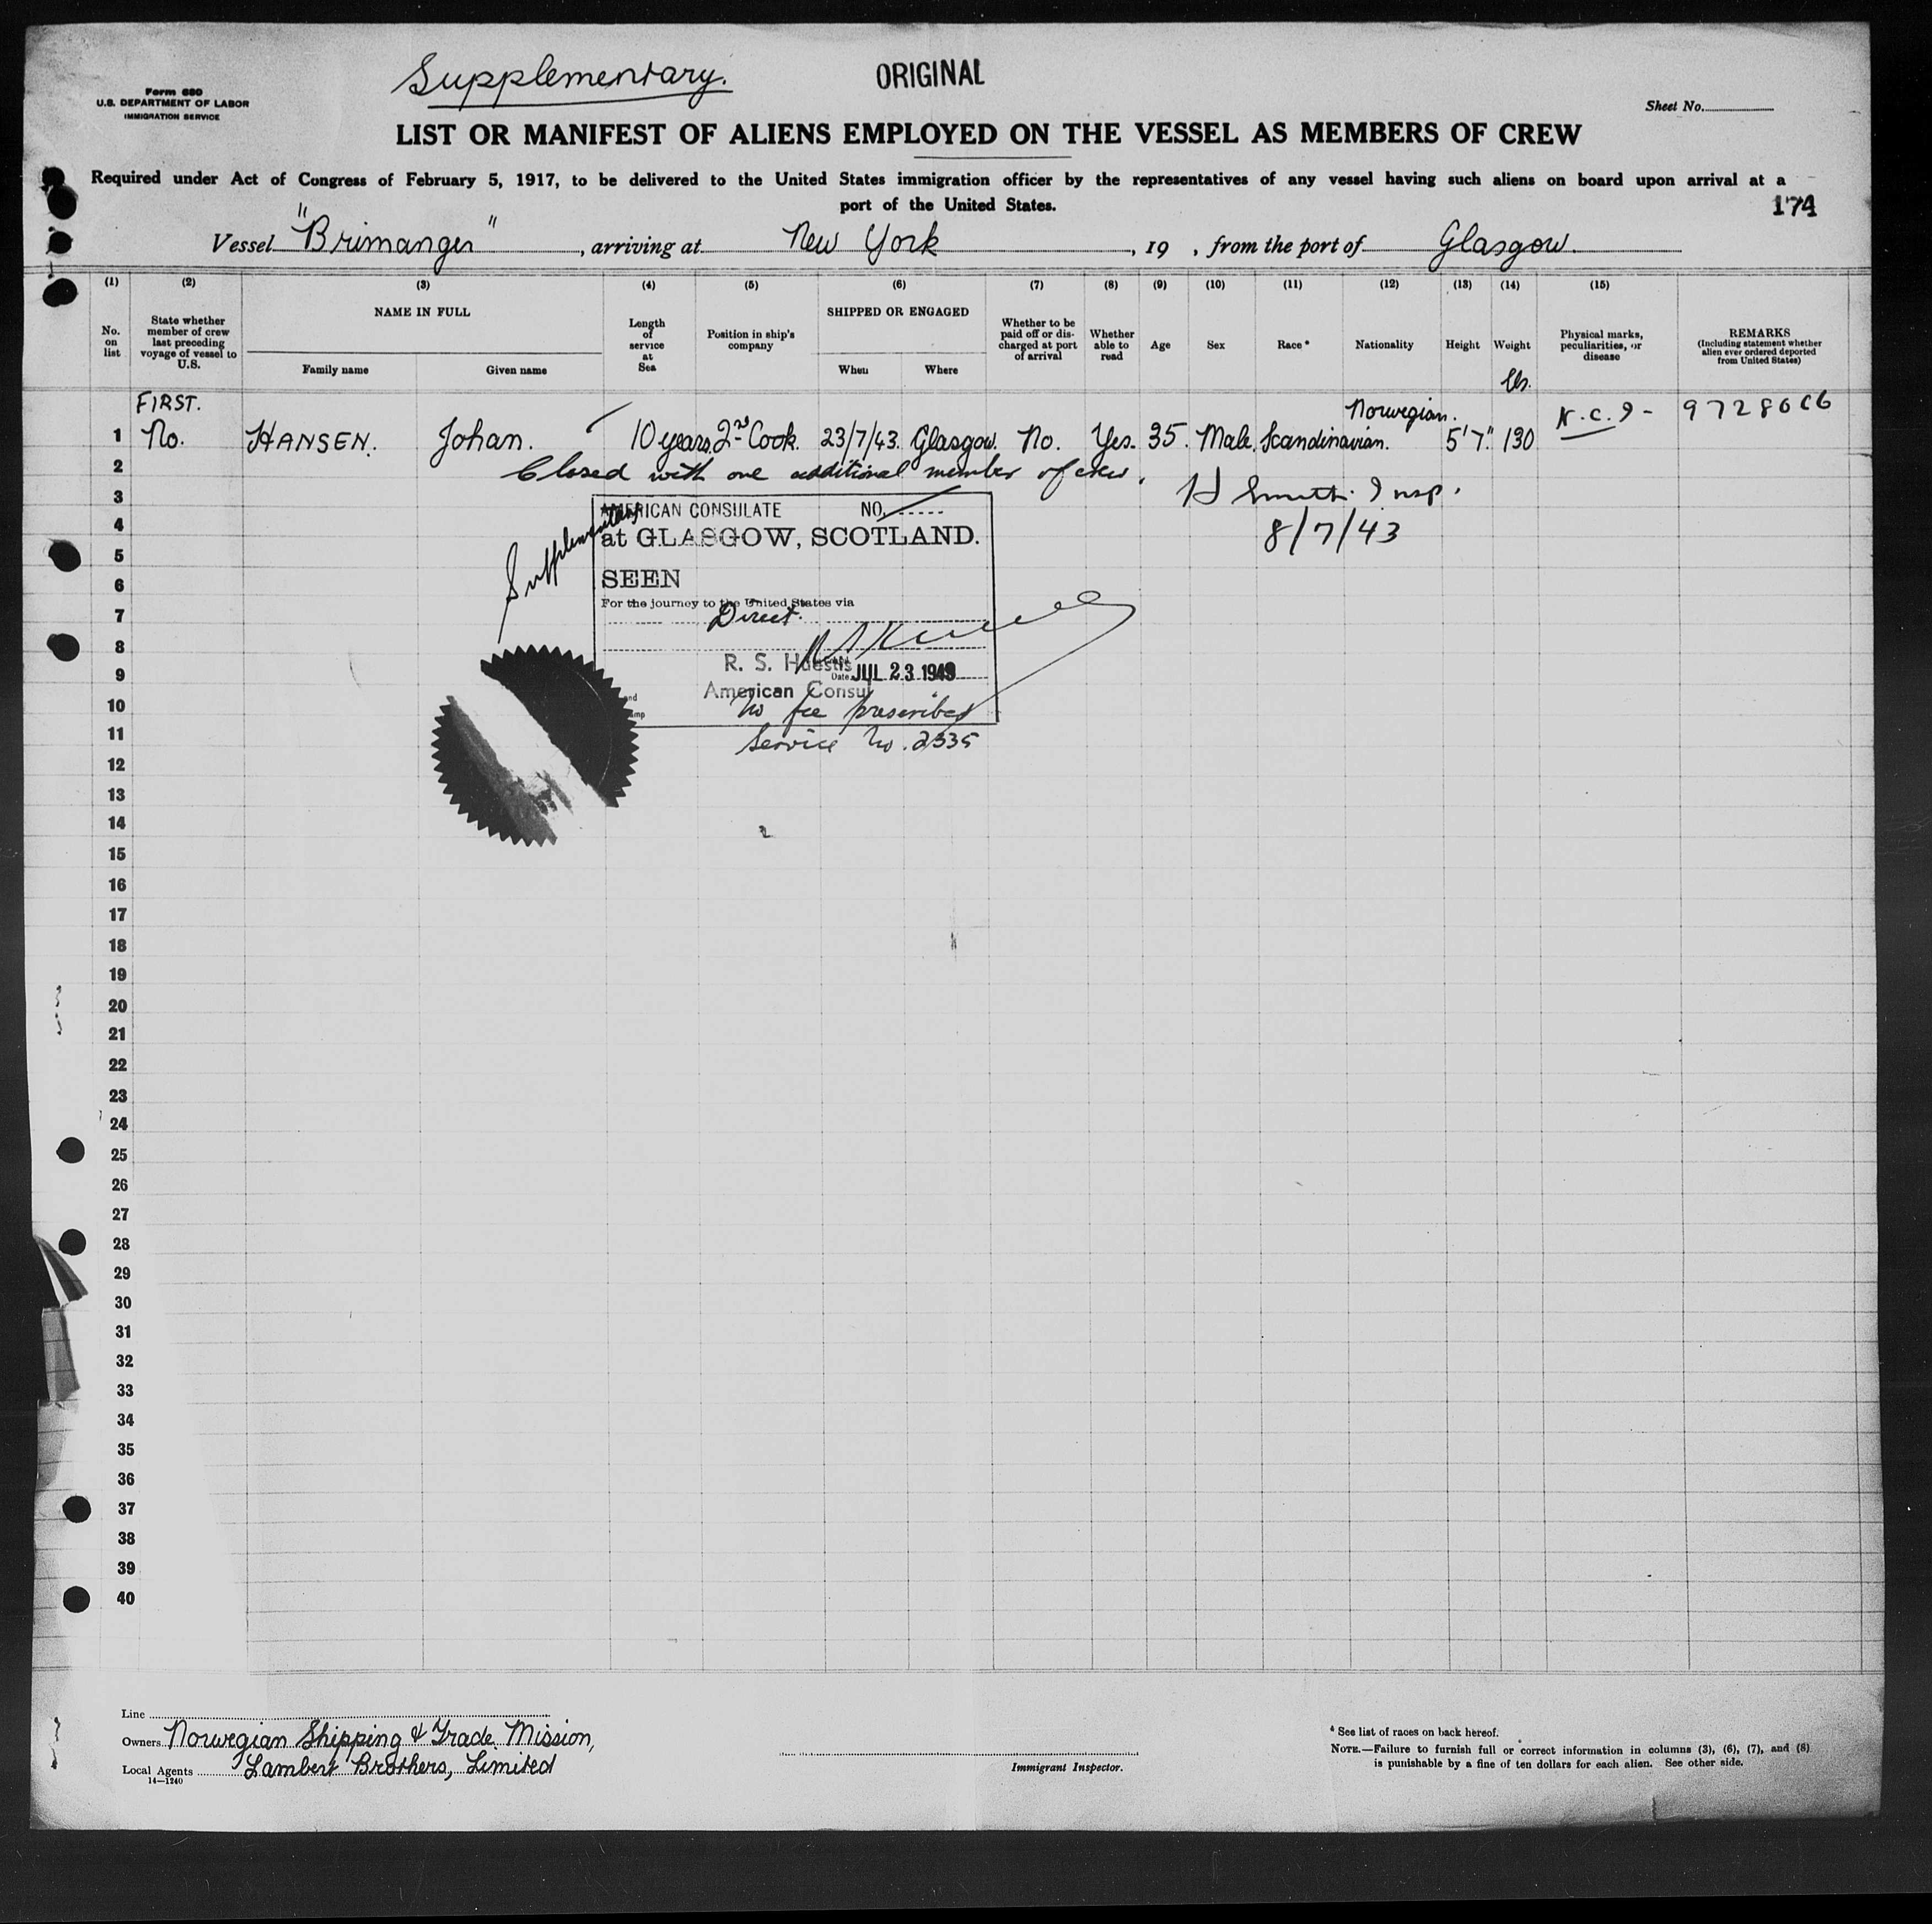 Supplementary.
ORIGINAL
Form 680
U.S. DEPARTMENT OF LABOR
IMMIGRATION SERVICE
Sheet No.
LIST OR MANIFEST OF ALIENS EMPLOYED ON THE VESSEL AS MEMBERS OF CREW
Required under Act of Congress of February 5, 1917, to be delivered to the United States immigration officer by the representatives of any vessel having such aliens on board upon arrival at a
port of the United States.
174
Vessel "Brimanger", arriving at New York, 19 , from the port of Glasgow.
(1) (2) (3) (4) (5) (6) (7) (8) (9) (10) (11) (12) (13) (14) (15)
No. on list
State whether member of crew last preceding voyage of vessel to U.S.
NAME IN FULL
Family name
Given name
Length of service at Sea
Position in ship's company
SHIPPED OR ENGAGED
When
Where
Whether to be paid off or discharged at port of arrival
Whether able to read
Age
Sex
Race *
Nationality
Height
Weight
lbs.
Physical marks, peculiarities, or disease
REMARKS
(Including statement whether alien ever ordered deported from United States)
FIRST.
Norwegian.
1 No. HANSEN. Johan. 10 years. 2nd Cook. 23/7/43. Glasgow. No. Yes. 35. Male. Scandinavian. 5'7". 130
2 Closed with one additional member of crew.
3 H Smith Insp.
8/7/43
4
5
6
7
8
9
10
11
12
13
14
15
16
17
18
19
20
21
22
23
24
25
26
27
28
29
30
31
32
33
34
35
36
37
38
39
40
Supplementary
AMERICAN CONSULATE NO.
at GLASGOW, SCOTLAND.
SEEN
For the journey to the United States via
Direct.
R. S. Huestis
Date JUL 23 1943
American Consul
No fee prescribed
Service No. 2335
Line
Owners Norwegian Shipping & Trade Mission,
Local Agents Lambert Brothers, Limited
14—1240
Immigrant Inspector.
* See list of races on back hereof.
NOTE.—Failure to furnish full or correct information in columns (3), (6), (7), and (8)
is punishable by a fine of ten dollars for each alien. See other side.